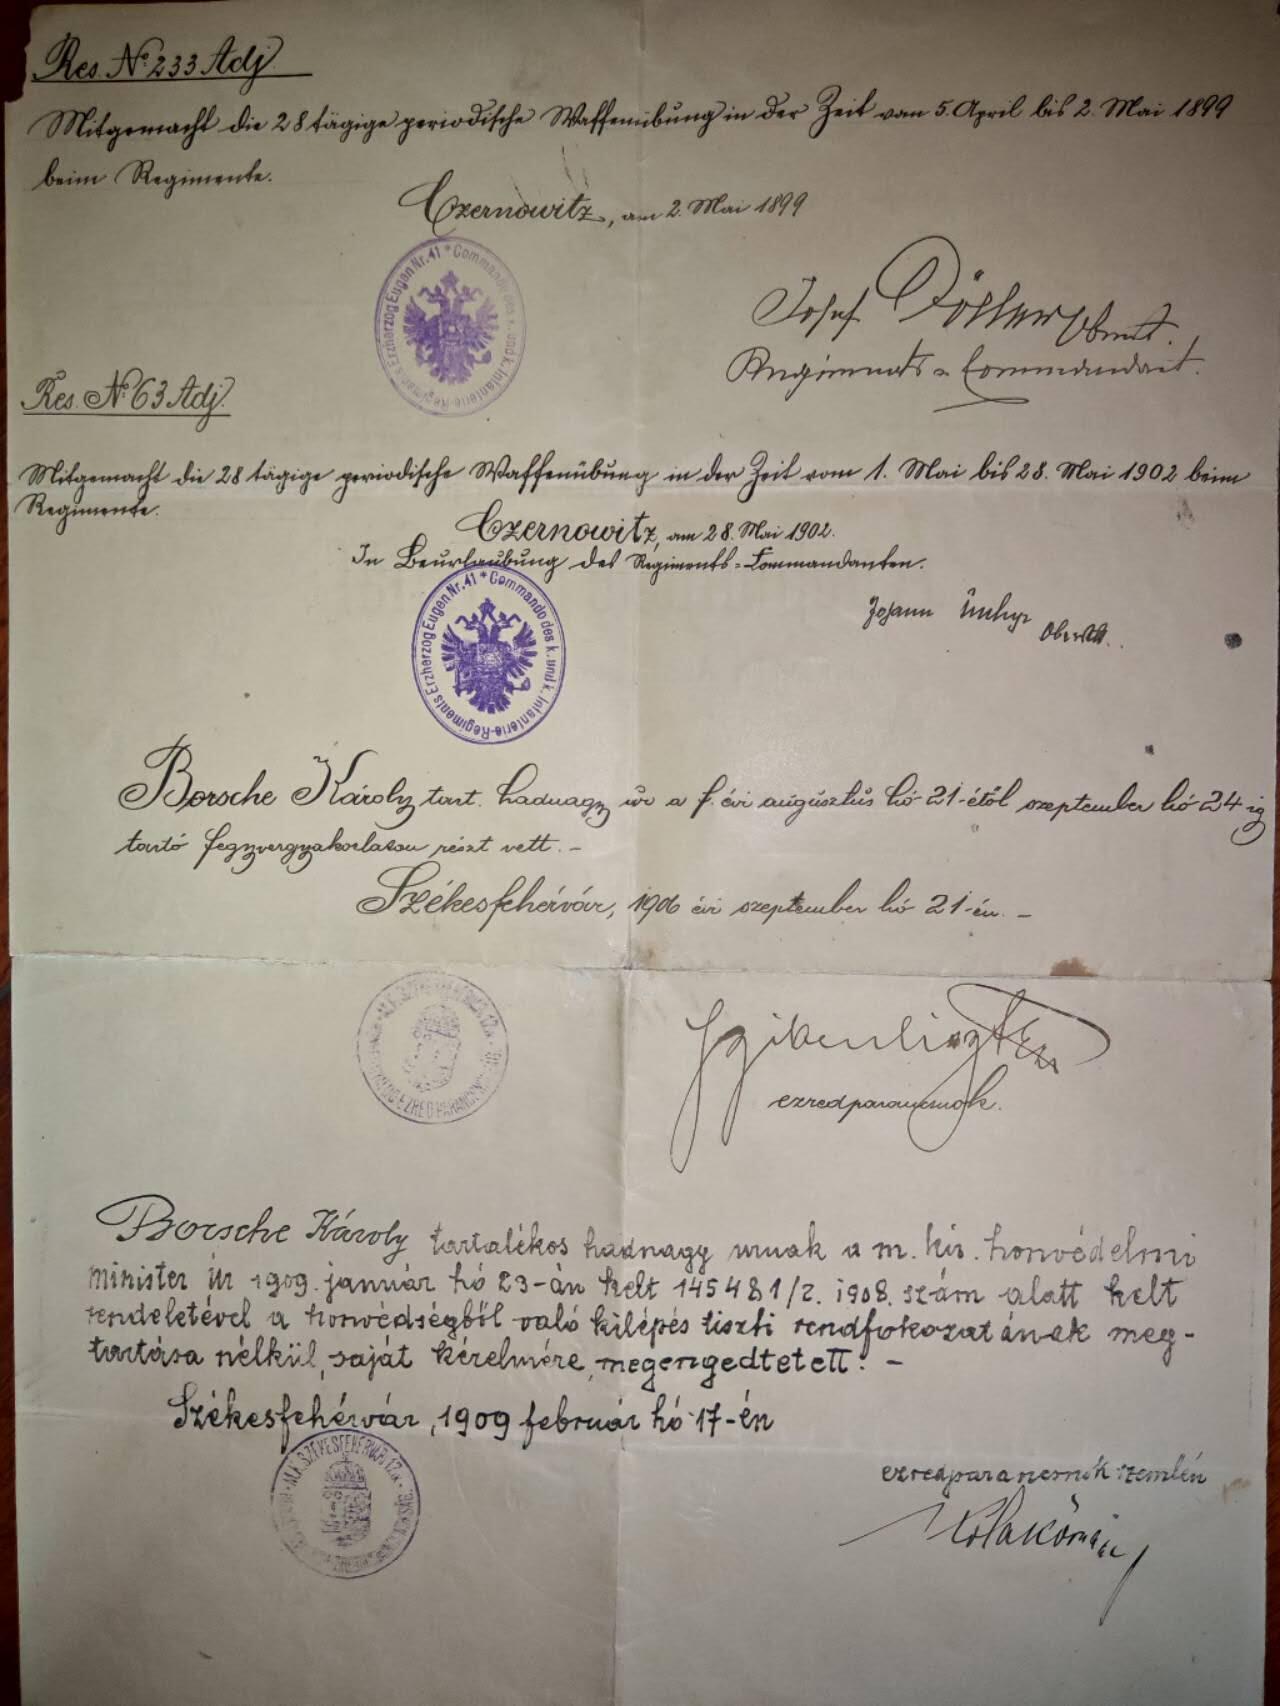 Res. № 233 Adj
Mitgemacht die 28 tägige periodische Waffenübung in der Zeit vom 5. April bis 2. Mai 1899
beim Regimente.
Czernowitz, am 2. Mai 1899
Commando des k. und k. Infanterie-Regiments Erzherzog Eugen Nr. 41 *
Josef
Regiments-Commandant.
Res. № 63 Adj.
Mitgemacht die 28 tägige periodische Waffenübung in der Zeit vom 1. Mai bis 28. Mai 1902 beim
Regimente.
Czernowitz, am 28. Mai 1902.
In Beurlaubung des Regiments-Commandanten.
Commando des k. und k. Infanterie-Regiments Erzherzog Eugen Nr. 41 *
Johann
Borsche Károly tart. hadnagy úr a f. évi augusztus hó 21-étől szeptember hó 24-ig
tartó fegyvergyakorlaton részt vett. –
Székesfehérvár, 1906 évi szeptember hó 21-én. –
ezredparancsnok.
Borsche Károly tartalékos hadnagy urnak a m. kir. honvédelmi
minister úr 1909. január hó 23-án kelt 145481/2. 1908. szám alatt kelt
rendeletével a honvédségből való kilépés tiszti rendfokozatának meg-
tartása nélkül, saját kérelmére, megengedtetett. –
Székesfehérvár, 1909 február hó 17-én
ezredparancsnok szemlén